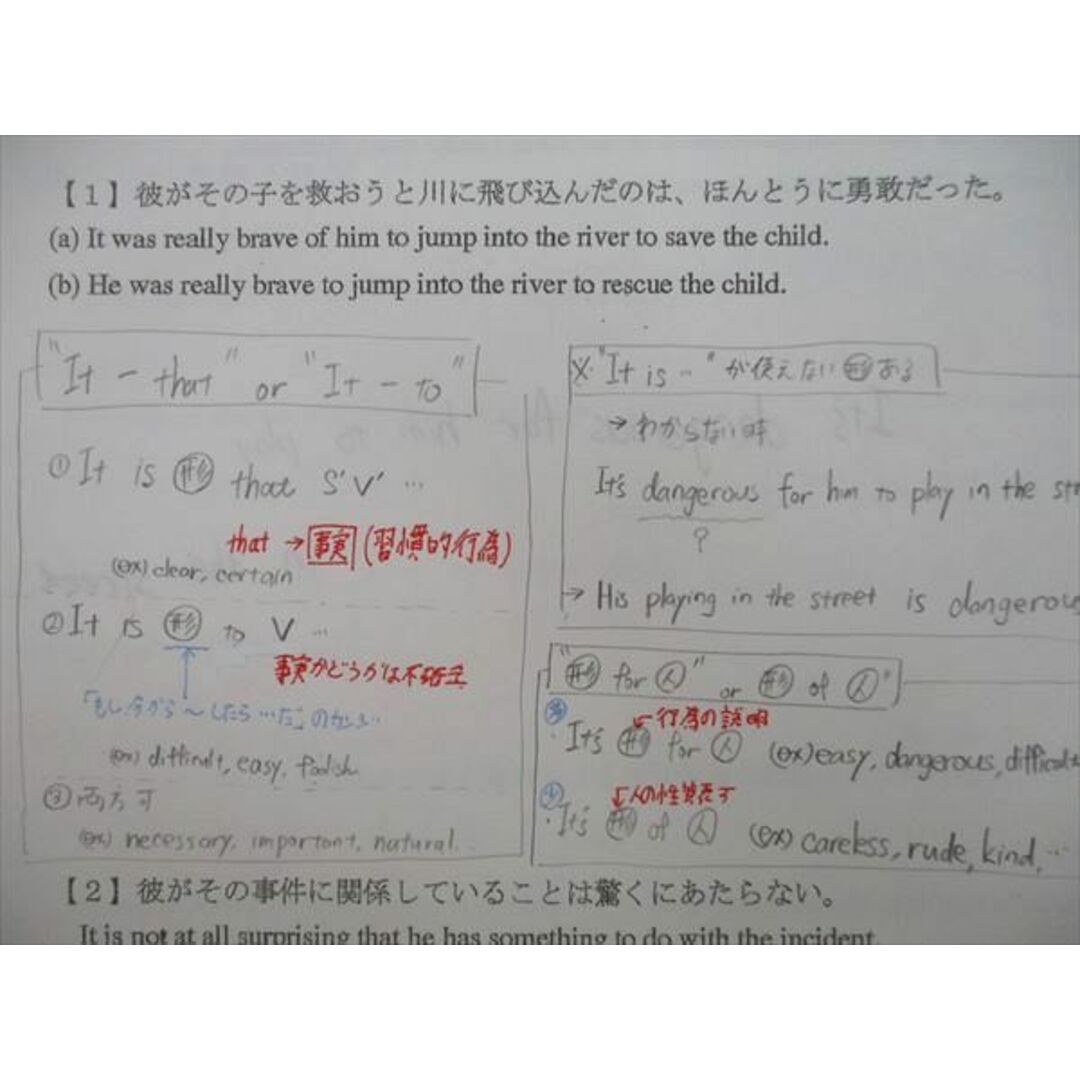 【1】彼がその子を救おうと川に飛び込んだのは、ほんとうに勇敢だった。
(a) It was really brave of him to jump into the river to save the child.
(b) He was really brave to jump into the river to rescue the child.
"It - that" or "It - to"
① It is 形 that S'V' …
that → 事実 (習慣的行為)
(ex) clear, certain
② It is 形 to V …
事実かどうかは不確定
「もし今から〜したら…だ」の
(ex) difficult, easy, foolish
③ 両方可
(ex) necessary, important, natural…
※ "It is …" が使えない 形 ある
→ わからない時
It's dangerous for him to play in the
?
→ His playing in the street is dangerous
"形 for 人" or 形 of 人"
← 行為の説明
・It's 形 for 人 (ex) easy, dangerous, difficult
人の性質表す
・It's 形 of 人 (ex) careless, rude, kind, …
【2】彼がその事件に関係していることは驚くにあたらない。
It is not at all surprising that he has something to do with the incident.